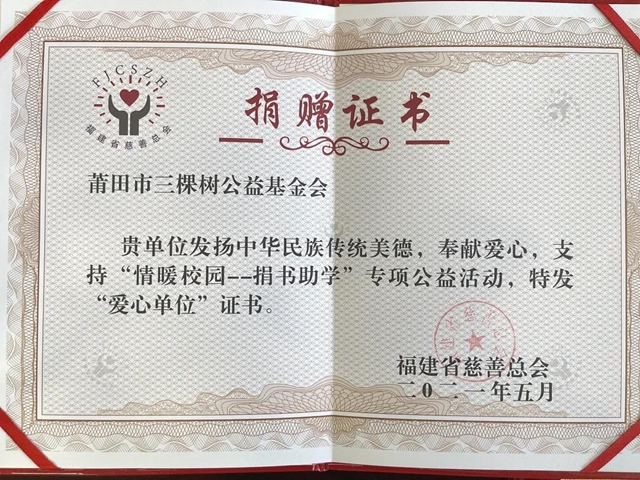 FJCSZH
福建省慈善总会
捐赠证书
莆田市三棵树公益基金会
贵单位发扬中华民族传统美德，奉献爱心，支
持“情暖校园--捐书助学”专项公益活动，特发
“爱心单位”证书。
福建省慈善总会
二〇二一年五月